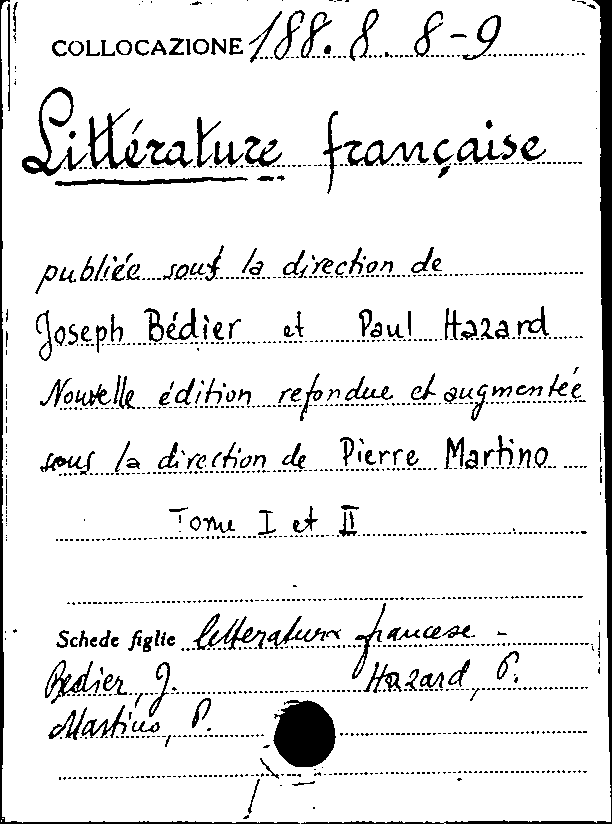 COLLOCAZIONE 188. 8. 8-9
Littérature française
publiée sous la direction de
Joseph Bédier et Paul Hazard
Nouvelle édition refondue et augmentée
sous la direction de Pierre Martino
Tome I et II
Schede figlie letteratura francese -
Bédier, J. Hazard, P.
Martino, P.